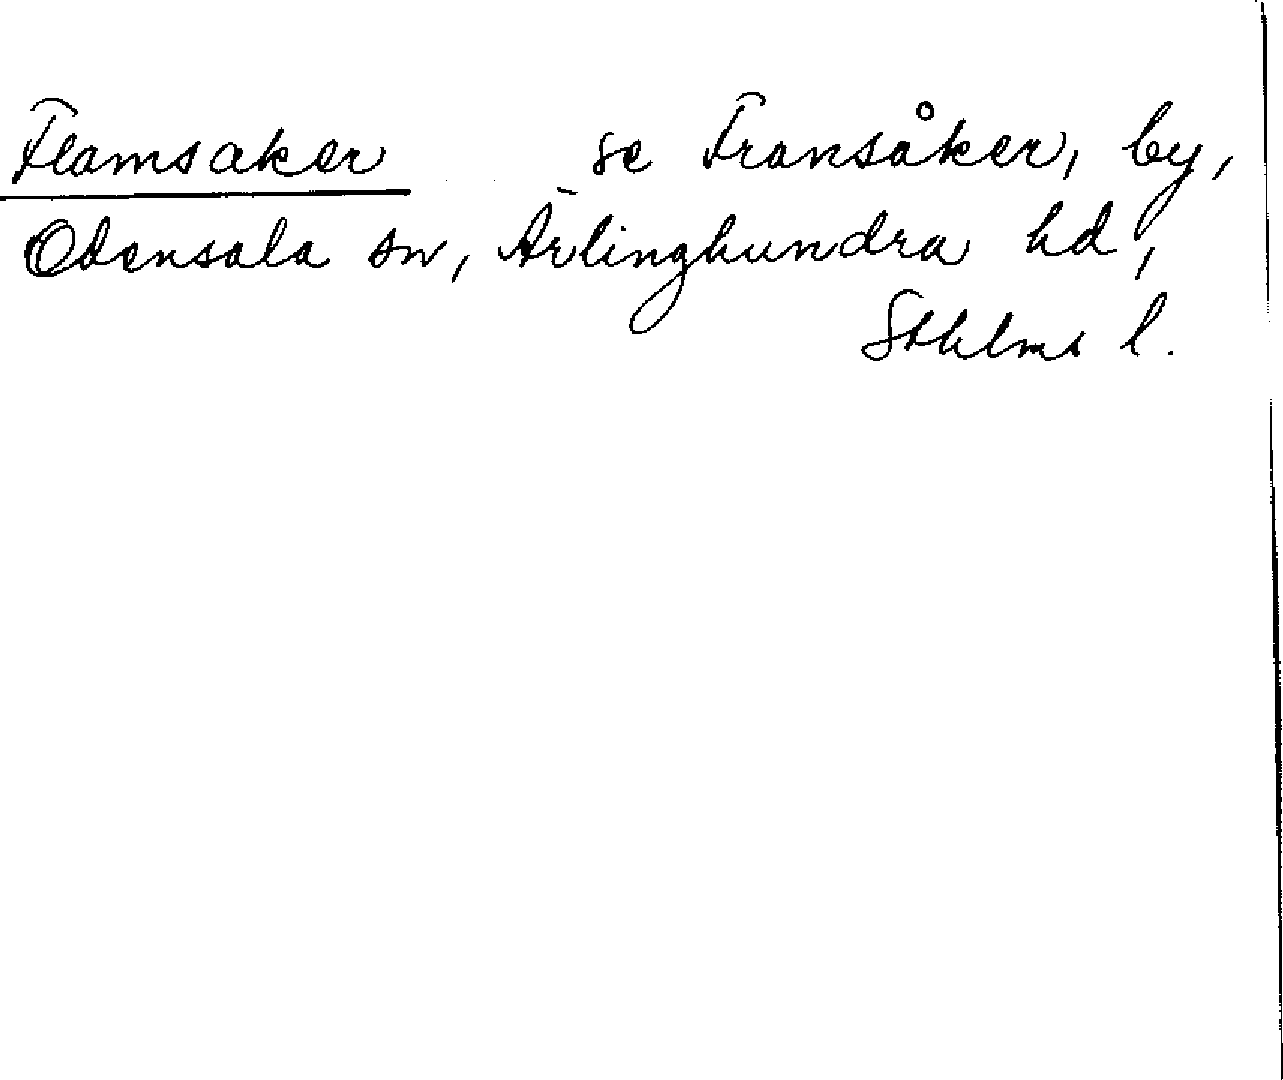 Flamsaker se Fransåker, by,
Odensala sn, Ärlinghundra hd,
Sthlms l.